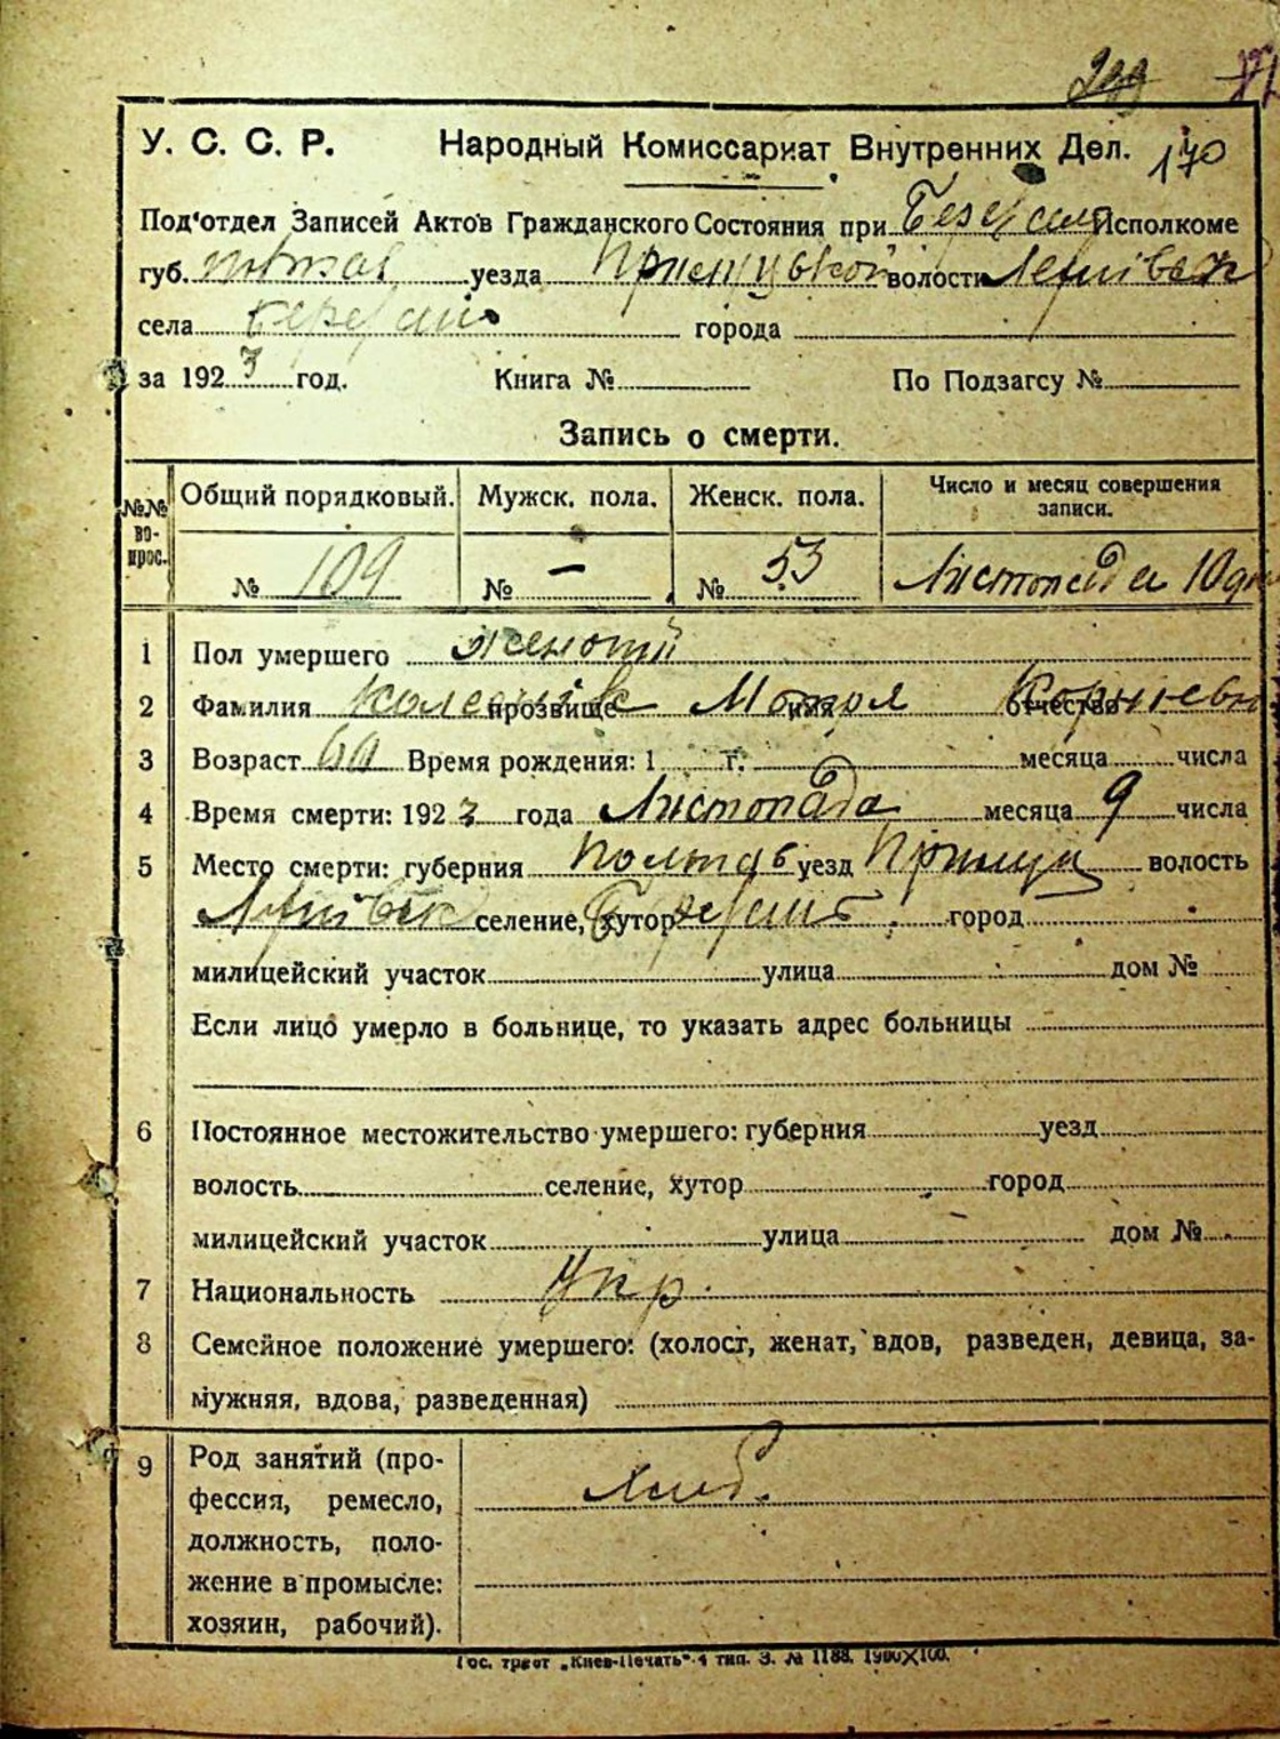 У. С. С. Р. Народный Комиссариат Внутренних Дел. 170
Под'отдел Записей Актов Гражданского Состояния при Исполкоме
губ. уезда волости
села города
за 1923 год. Книга № По Подзагсу №
Запись о смерти.
№№ вопрос. Общий порядковый. Мужск. пола. Женск. пола. Число и месяц совершения записи.
№ 109 № — № 53 Листопада 10 дня
1 Пол умершего женотій
2 Фамилия Колесник прозвище Мотря имя отчество
3 Возраст 60 Время рождения: 1 г. месяца числа
4 Время смерти: 1923 года Листопада месяца 9 числа
5 Место смерти: губерния Полтав уезд волость
селение, хутор город
милицейский участок улица дом №
Если лицо умерло в больнице, то указать адрес больницы
6 Постоянное местожительство умершего: губерния уезд
волость селение, хутор город
милицейский участок улица дом №
7 Национальность Укр.
8 Семейное положение умершего: (холост, женат, вдов, разведен, девица, за-
мужняя, вдова, разведенная)
9 Род занятий (про-
фессия, ремесло,
должность, поло-
жение в промысле:
хозяин, рабочий).
Гос. трест „Киев-Печать“ 4 тип. З. № 1188.